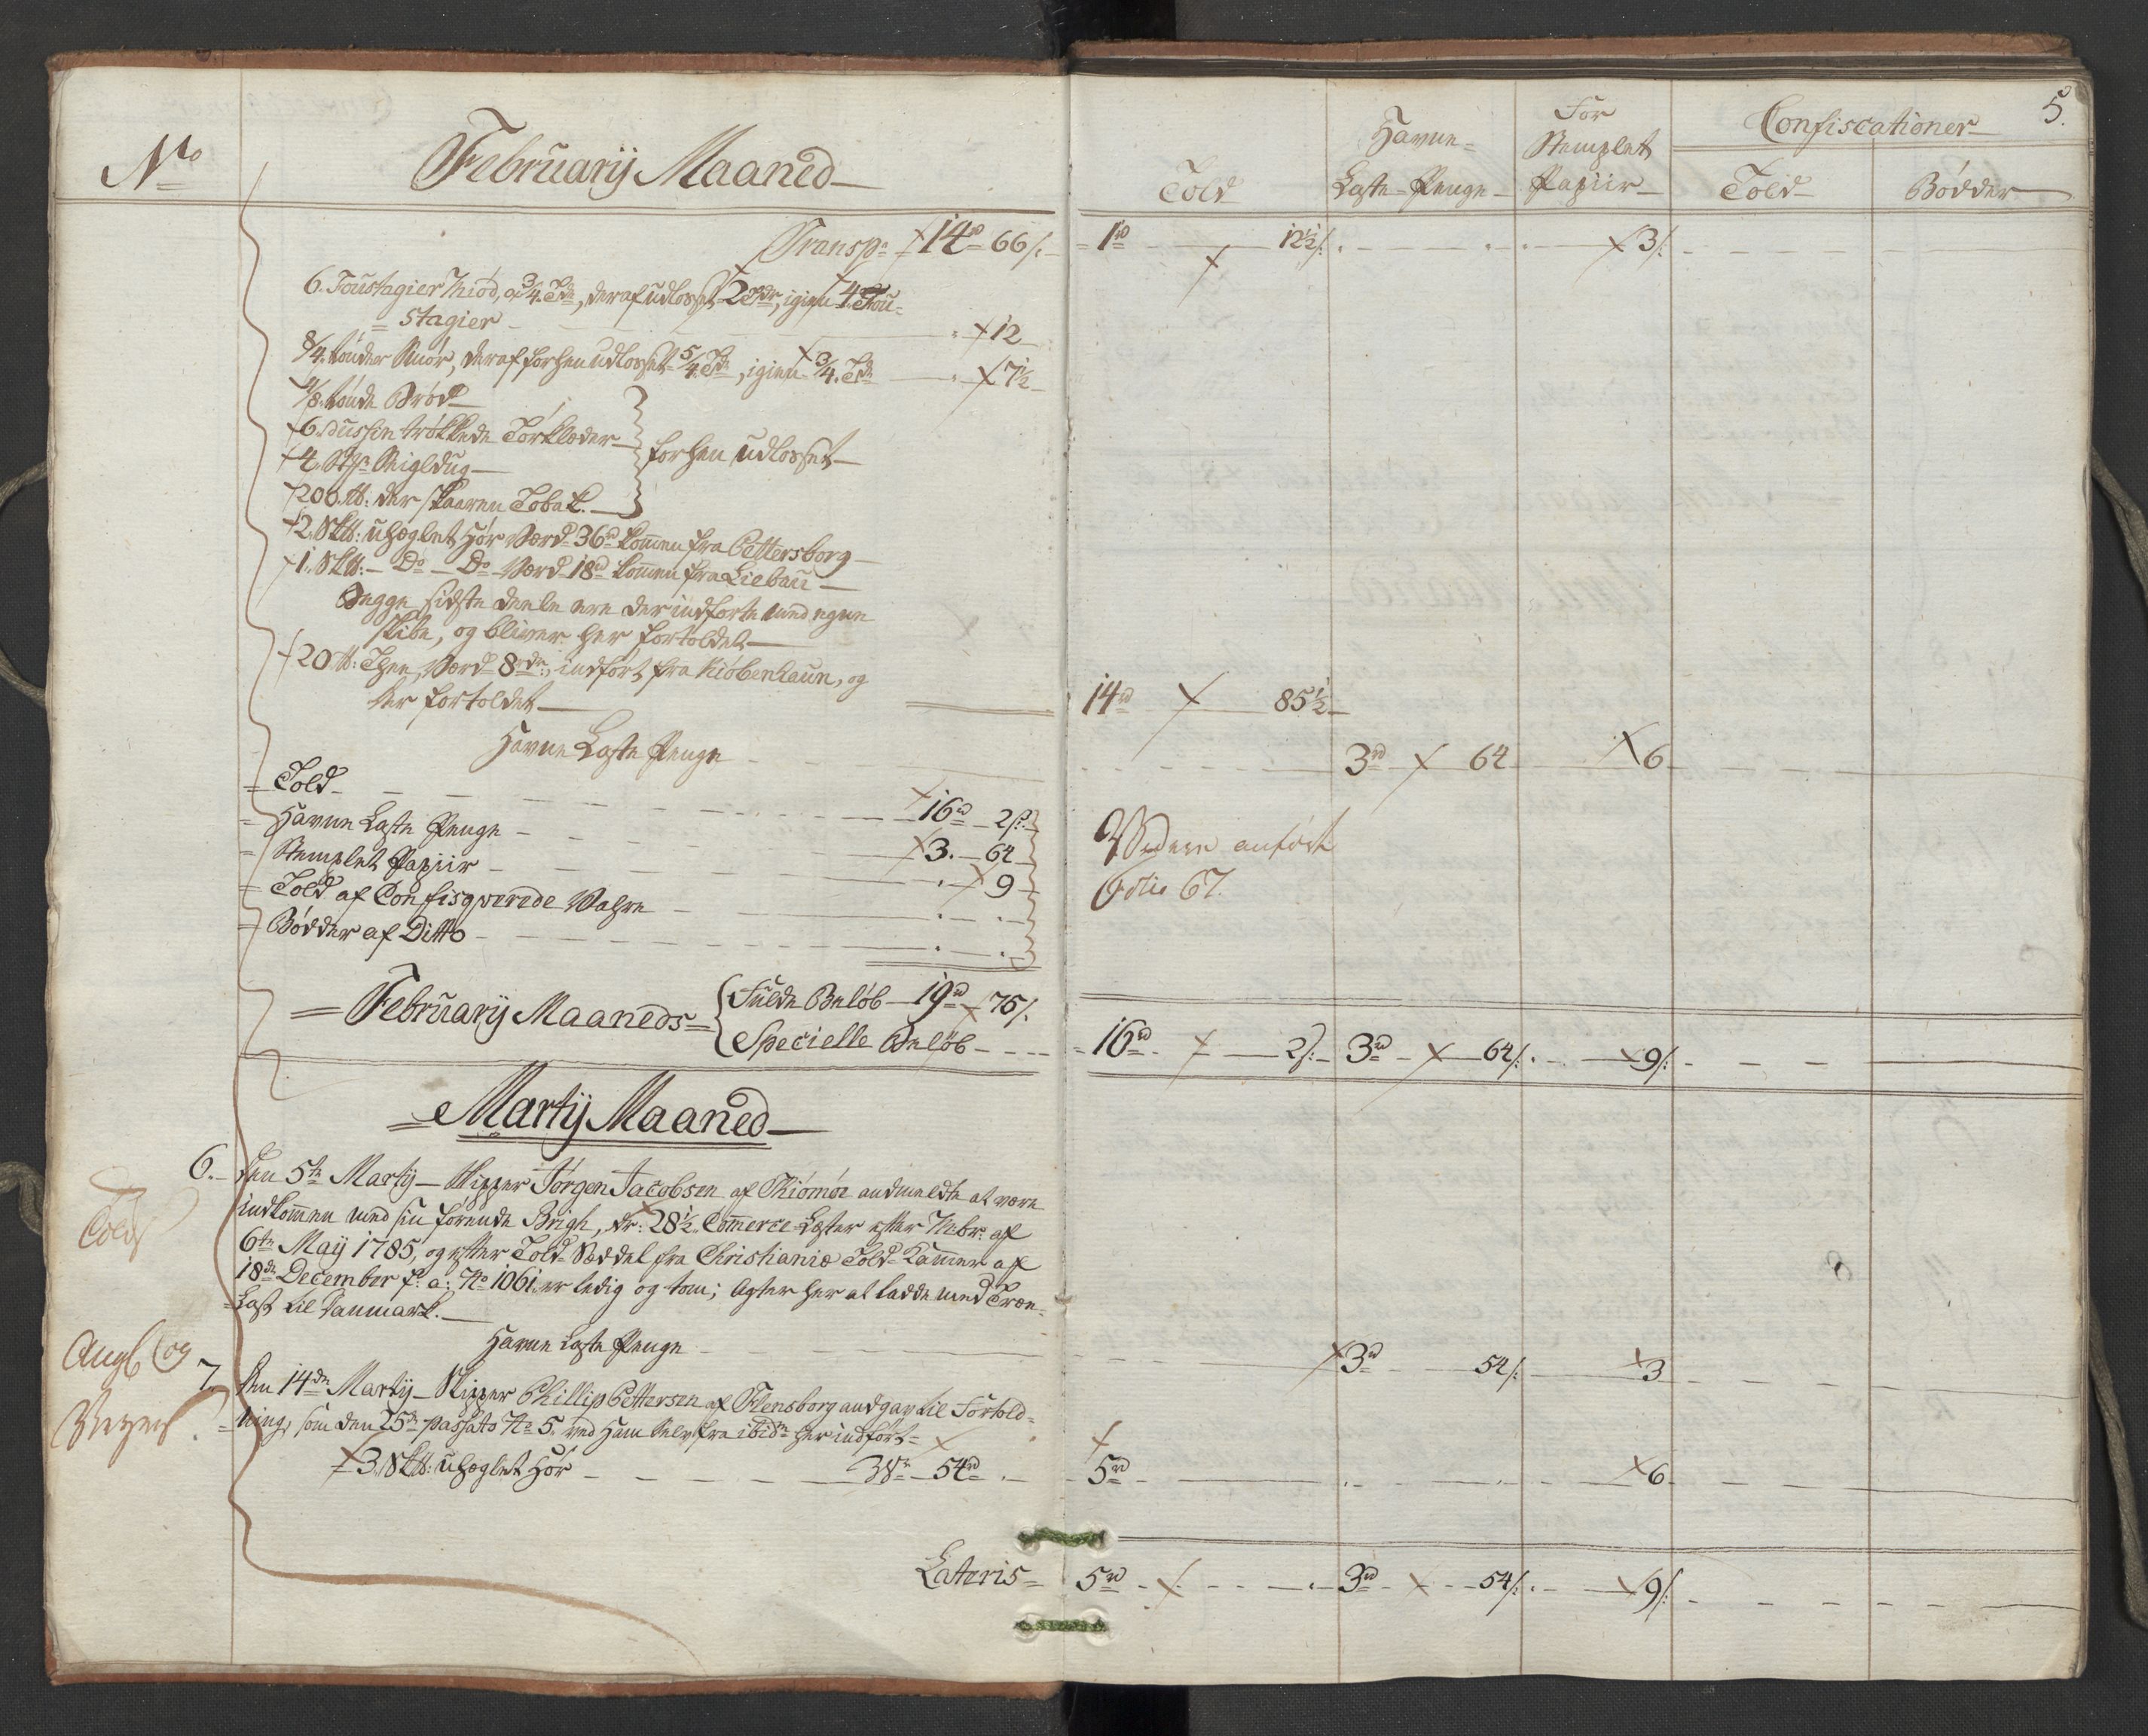 No
Februarij Maaned
Transp. 14rd 66/.
6. Foustagier Miød, a 3/4. Tde, deraf udlosset 2 Tdr, igien 4. Fou-
stagier 12
8/4. tønder Smør, deraf forhen udlosset 5/4. Tde, igien 3/4. Tde 7½
4/8. tønde Brød
6. dussin trøkkede Tørklæder
4. St. Seigldug
forhen udlosset
200 ℔: der skaaren Tobak.
2. Sk℔: uheglet Hør Værd 36rd kommen fra Pettersborg
1. Sk℔: Do Do Værd 18rd kommen fra Liebau
Begge sidste deele ere der indførte med egne
skibe, og bliver her fortoldet
20 ℔: Thee, Værd 8rdr, indført fra Kiøbenhaun, og
der fortoldet
Havne Laste Penge
Told 16rd 2/:
Havne Laste Penge 3. 64
Stemplet Papiir 9
Told af Confisqverede Vahre
Bødder af Ditto
Februarij Maaneds
Fulde Beløb 19rd 75/.
Specielle Beløb
Martij Maaned
6. Den 5te Martij Skipper Jørgen Jacobsen af Tkiømøe andmeldte at være
indkommen med sin førende Brigh, dr: 28½ Commerce-Læster efter Mbr: af
6te Maij 1785, og efter Told-Sæddel fra Christianiæ Told-Kammer af
18de December f. a: No 1061. er ledig og tom; Agter her at ladde med Træe-
Last til Danmark.
Told
Havne Laste Penge
Angb og
7. Den 14de Martij Skipper Phillip Pettersen af Flensborg andgav til Fortold-
ning, som den 25de passato No 5. ved Ham Selv fra ibidm her indført
3. Sk℔: uheglet Hør 54rd
Lateris
5.
Told
Havne-
Laste-Penge
For
Stemplet
Papiir
Confiscationer
Told
Bødder
1rd 12½/: 3/:
14rd 85½
3rd 64 6
Videre anført
Folio 67.
16rd 2/: 3rd 64/: 9/:
3rd 54/: 3
5rd 6
5rd 3rd 54/: 9/: